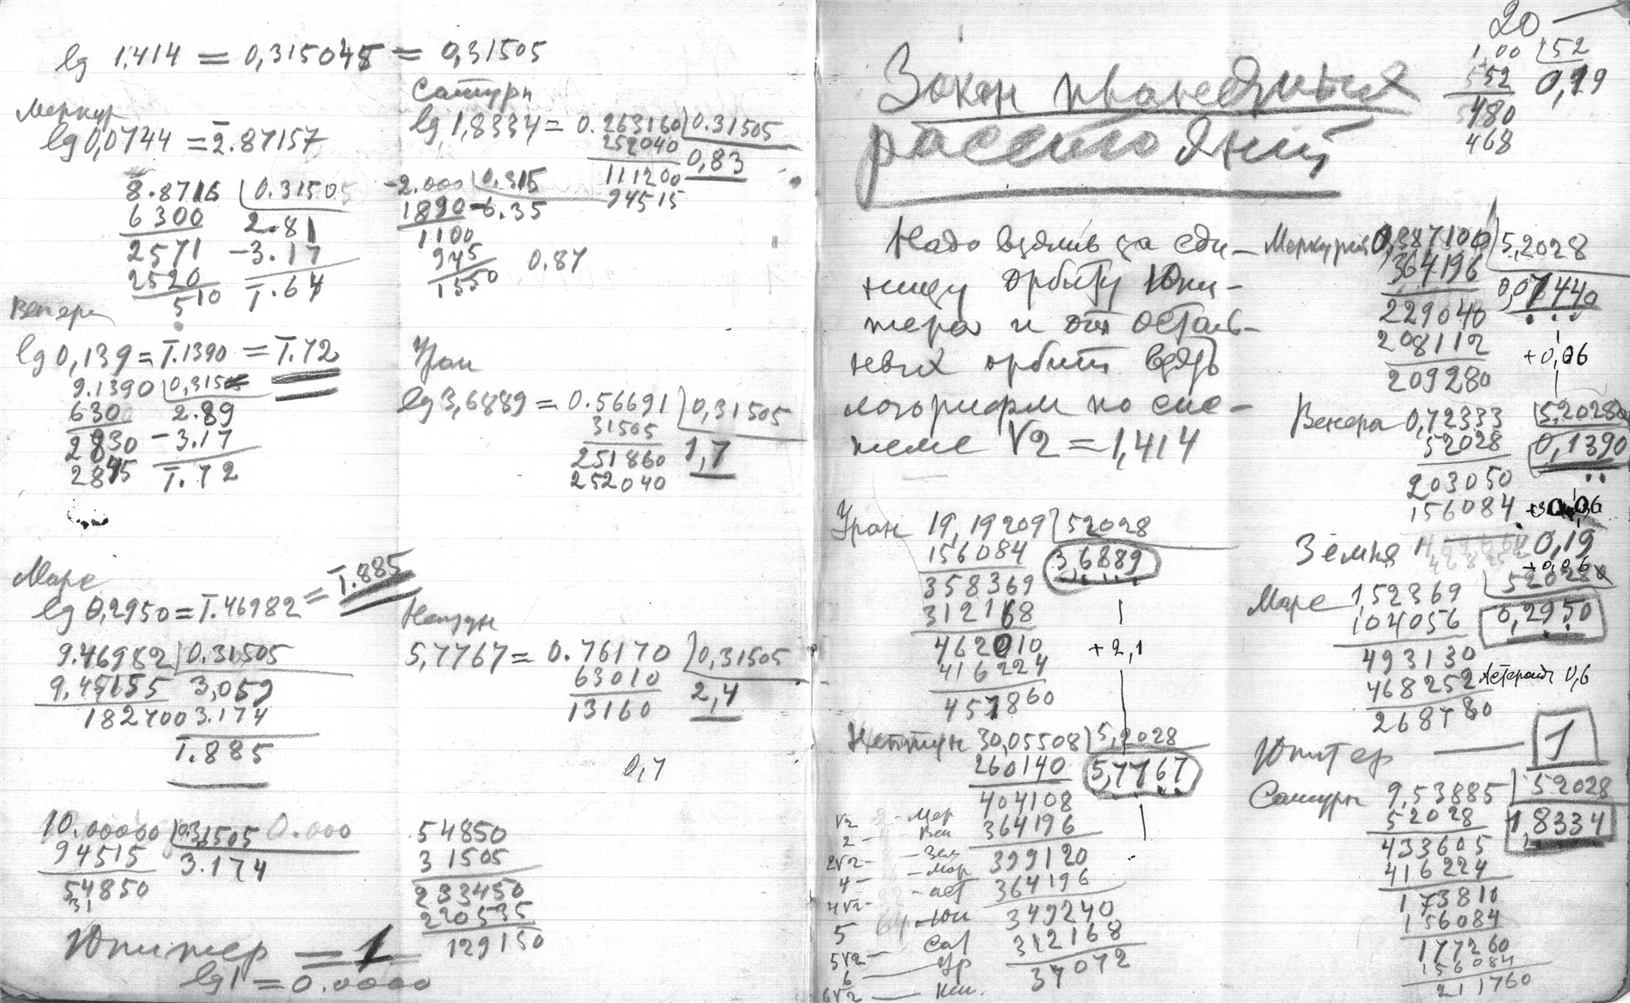 lg 1,414 = 0,315045 = 0,31505
Меркур
lg 0,0744 = 2.87157
8.8716 0.31505
6300 2.81
2571 -3.17
2520 1.64
510
Венера
lg 0,139 = 1.1390 = 1.72
9.1390 0,315
630 2.89
2830 -3.17
2845 1.72
Марс
lg 0,2950 = 1.46982 = 1.885
9.46982 0.31505
9.45155 3,059
182700 3.174
1.885
10.00000 0.31505 0.000
94515 3.174
54850
31
Юпитер = 1
lg 1 = 0.0000
Сатурн
lg 1,8334 = 0.263160 0.31505
252040 0,83
111200
94515
-2.000 0.315
1890 -6.35
1100
945
1550
0.87
Уран
lg 3,6889 = 0.56691 0,31505
31505 1,7
251860
252040
Нептун
5,7767 = 0.76170 0,31505
63010 2,4
13160
0,7
54850
31505
233450
220535
129150
20
1.00 52
552 0,19
480
468
Закон планетных
расстояний
Надо взять за еди-
ницу орбиту Юпи-
тера и от осталь-
ных орбит взять
логорифм по сис-
теме √2 = 1,414
Уран 19,19209 52028
156084 3,6889
358369
312168
462010 +2,1
416224
457860
Нептун 30,05508 5,2028
260140 5,7767
404108
364196
399120
364196
349240
312168
37072
√2 - Мер
2 - Вен
2√2 - Зем
4 - Мар
4√2 - аст
5 - Юп
5√2 - Сат
6 - Ур
6√2 - Неп.
Меркурий 0,387100 5,2028
364196 0,07440
229040
208112 +0,06
209280
Венера 0,72333 5,2028
52028 0,1390
203050
156084
Земля 0,19
+0,06
Марс 152369 52028
104056 0,2950
493130
468252 Астероид 0,6
268780
Юпитер 1
Сатурн 9,53885 52028
52028 1,8334
433605
416224
173810
156084
177260
156084
211760